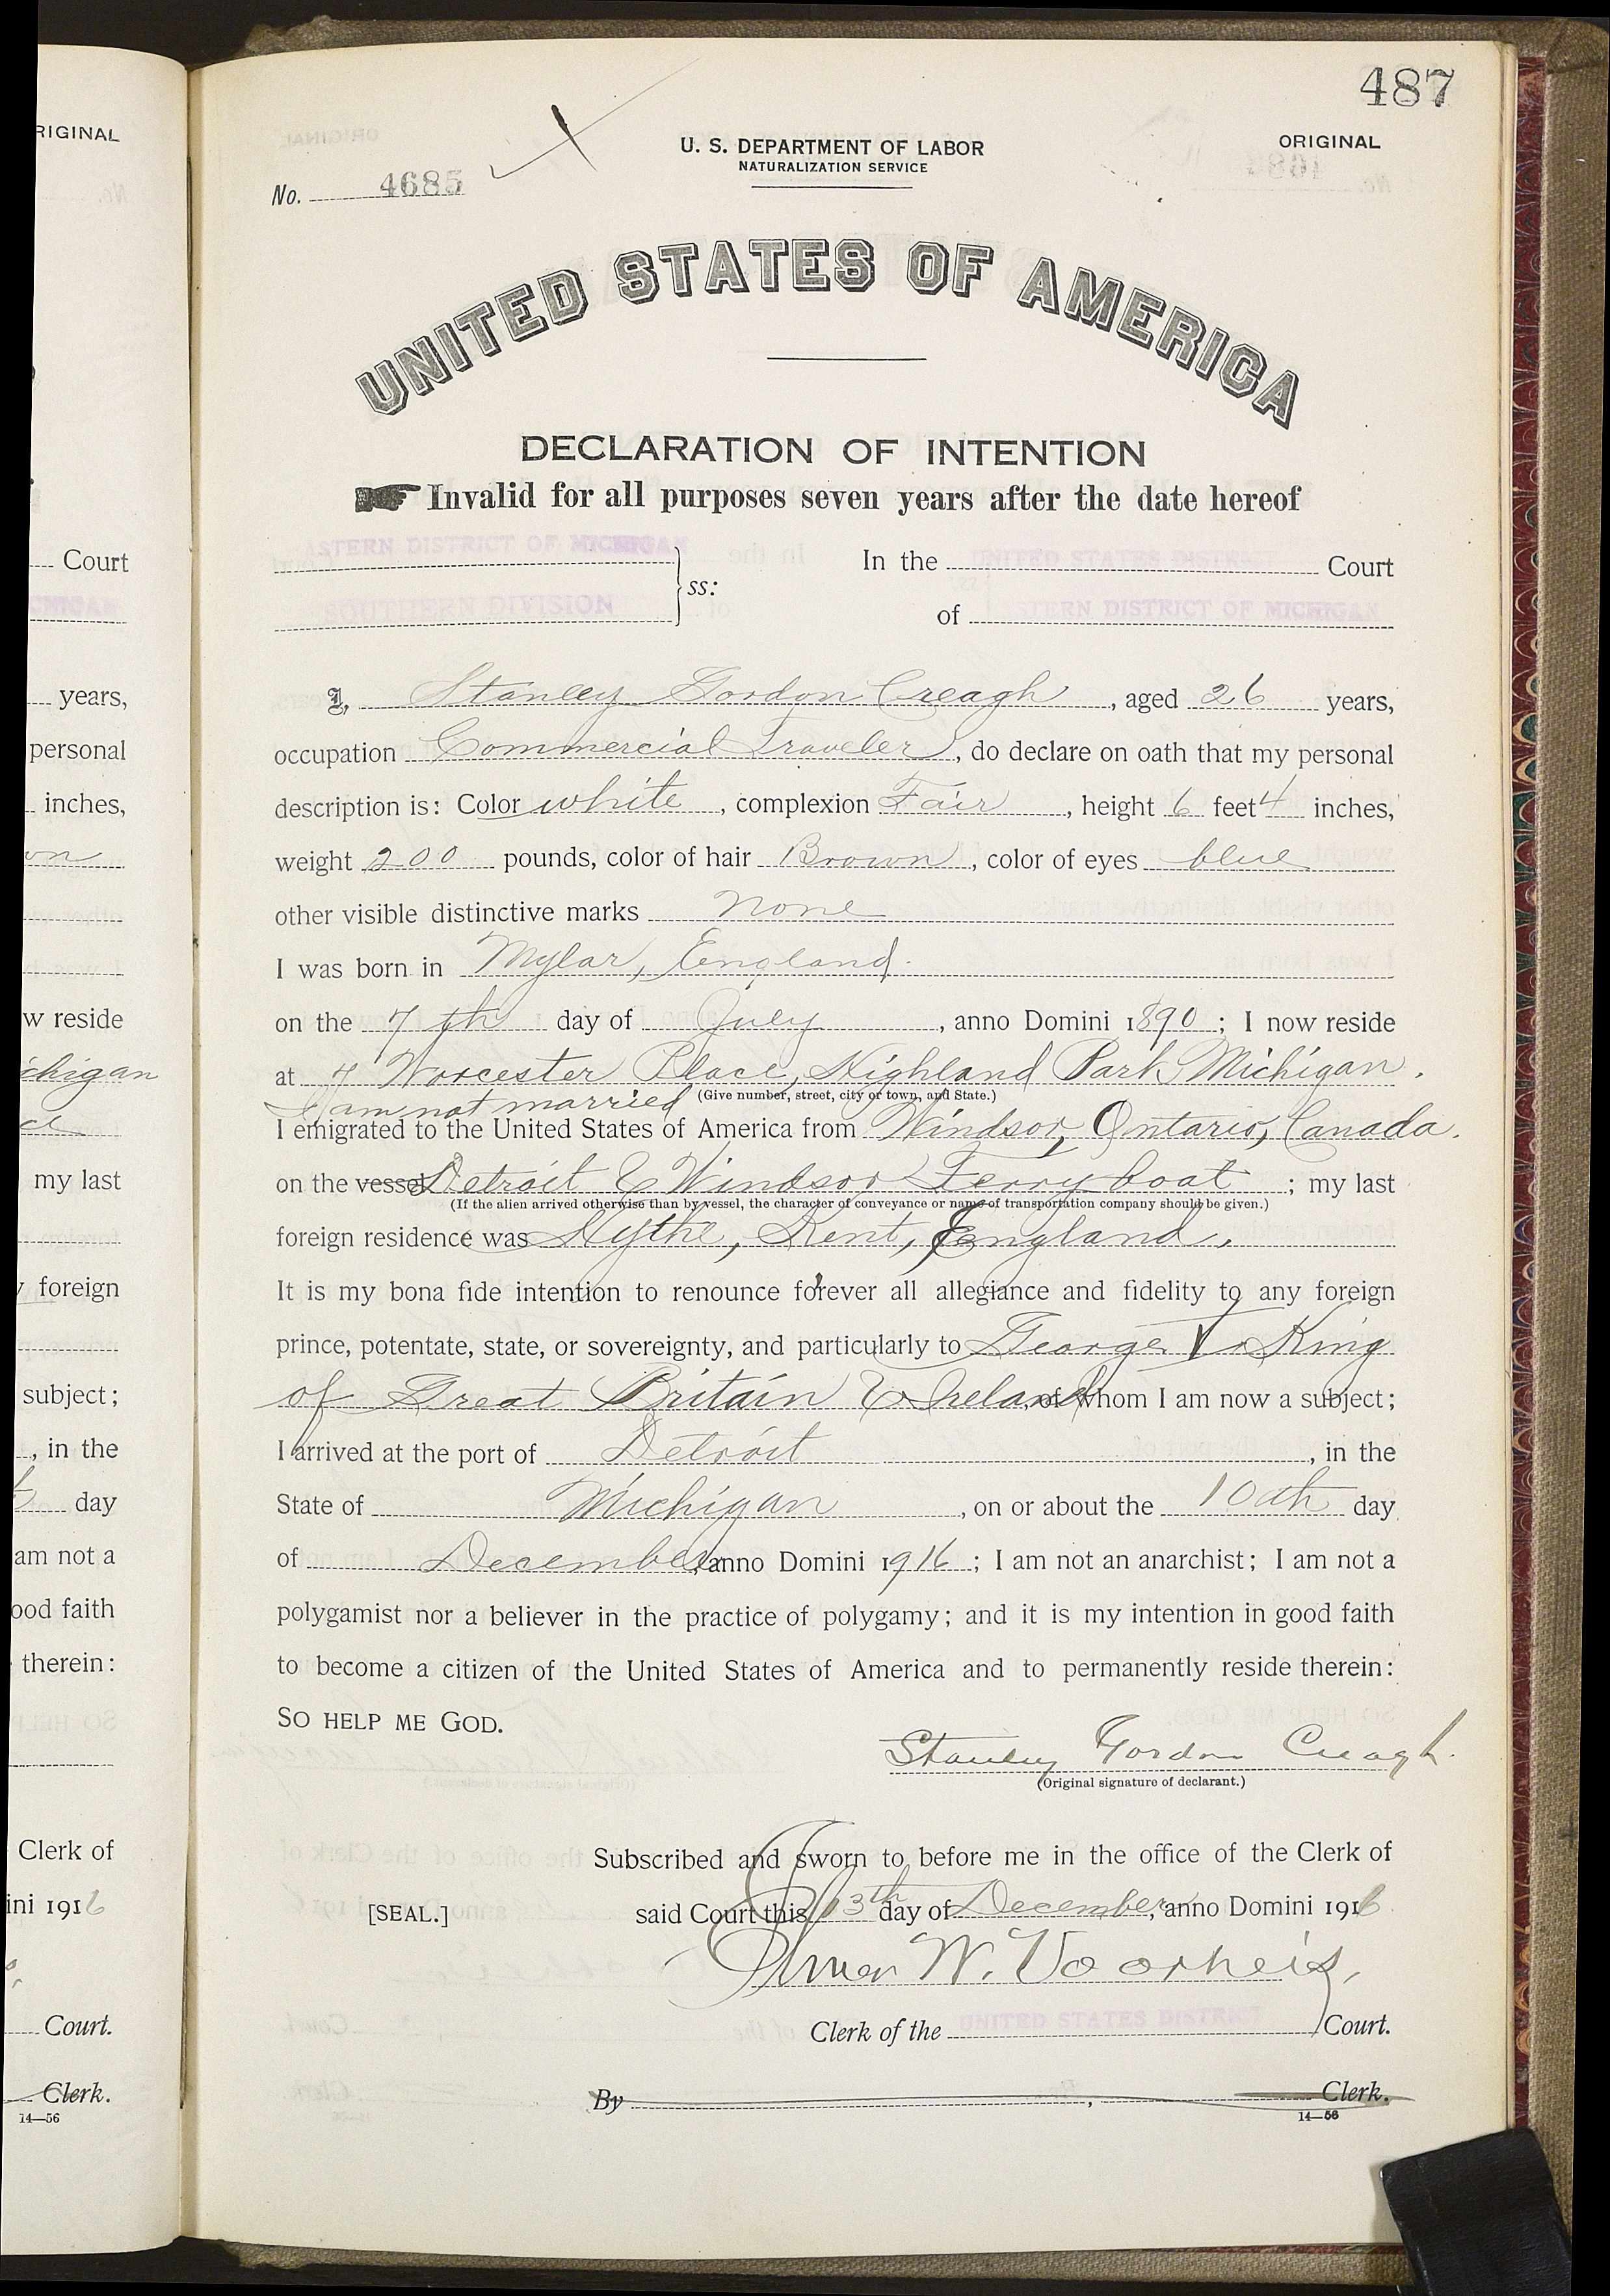 487
RIGINAL
ORIGINAL
U. S. DEPARTMENT OF LABOR
NATURALIZATION SERVICE
No. 4685
UNITED STATES OF AMERICA
DECLARATION OF INTENTION
Invalid for all purposes seven years after the date hereof
STERN DISTRICT OF MICHIGAN
SOUTHERN DIVISION
ss:
In the UNITED STATES DISTRICT Court
of STERN DISTRICT OF MICHIGAN
I, Stanley Gordon Creagh, aged 26 years,
occupation Commercial Traveler, do declare on oath that my personal
description is: Color white, complexion Fair, height 6 feet 4 inches,
weight 200 pounds, color of hair Brown, color of eyes blue
other visible distinctive marks none
I was born in Mylar, England.
on the 7th day of July, anno Domini 1890; I now reside
at 7 Worcester Place, Highland Park, Michigan.
(Give number, street, city or town, and State.)
I am not married
I emigrated to the United States of America from Windsor, Ontario, Canada.
on the vessel Detroit & Windsor Ferry boat; my last
(If the alien arrived otherwise than by vessel, the character of conveyance or name of transportation company should be given.)
foreign residence was Hythe, Kent, England.
It is my bona fide intention to renounce forever all allegiance and fidelity to any foreign
prince, potentate, state, or sovereignty, and particularly to George V. King
of Great Britain & Ireland, of whom I am now a subject;
I arrived at the port of Detroit, in the
State of Michigan, on or about the 10th day
of December, anno Domini 1916; I am not an anarchist; I am not a
polygamist nor a believer in the practice of polygamy; and it is my intention in good faith
to become a citizen of the United States of America and to permanently reside therein:
SO HELP ME GOD.
Stanley Gordon Creagh.
(Original signature of declarant.)
Subscribed and sworn to before me in the office of the Clerk of
[SEAL.]
said Court this 13th day of December, anno Domini 1916
Elmer W. Voorheis,
Clerk of the UNITED STATES DISTRICT Court.
By , Clerk.
14—56
Court
CHIGAN
years,
personal
inches,
w reside
ichigan
my last
y foreign
subject;
, in the
day
am not a
ood faith
therein:
Clerk of
ini 1916
Court.
Clerk.
14—56